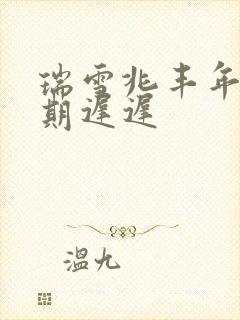 瑞雪兆丰年
期遲遲
溫九